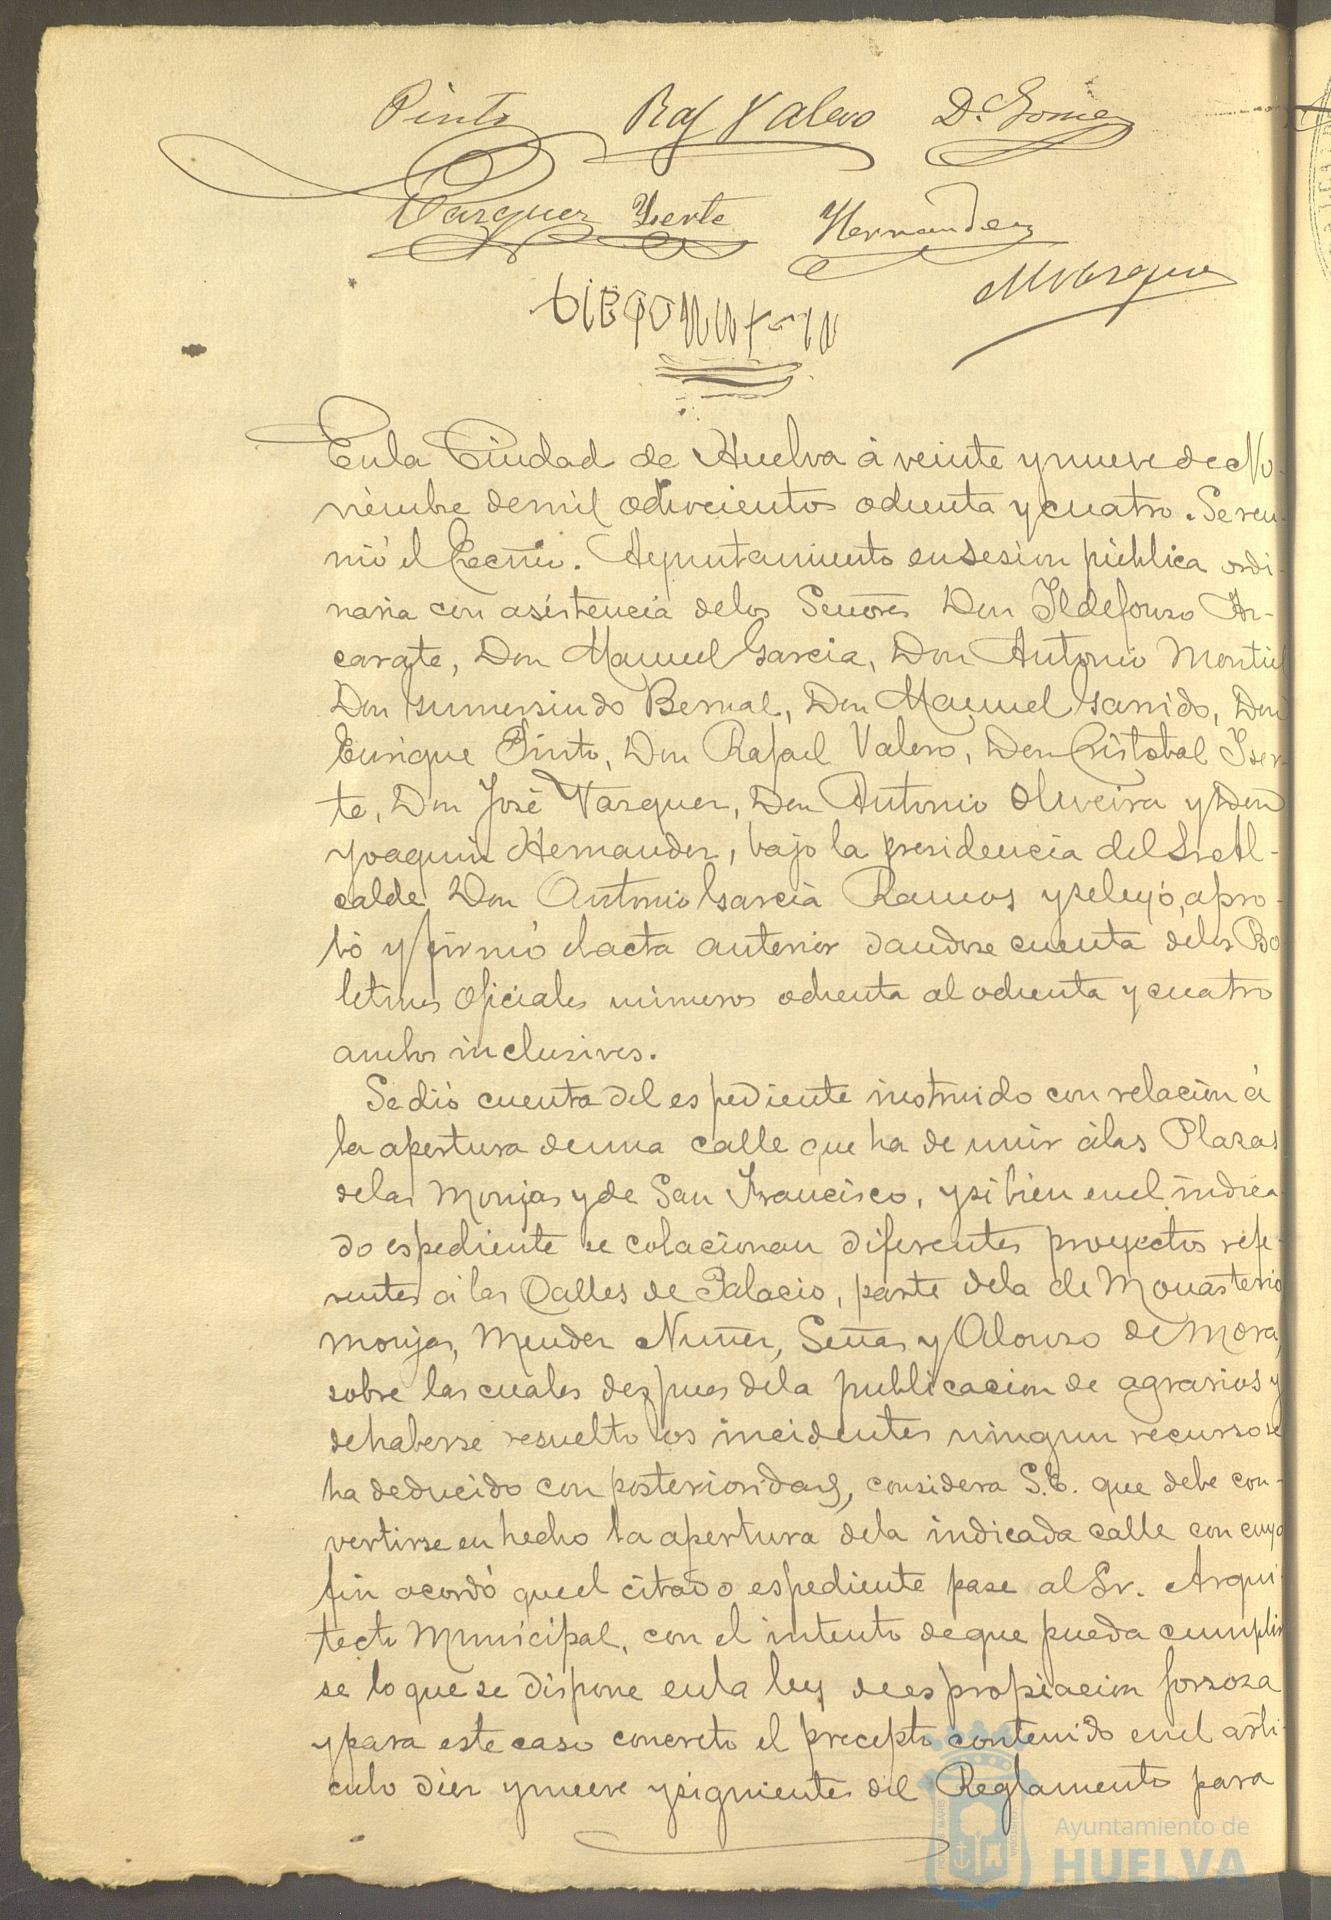 Pinto Raf Valero D. Gomez
Vazquez Yserte Hernandez
M Vazquez
DIEGO
En la Ciudad de Huelva á veinte y nueve de No-
viembre de mil ochocientos ochenta y cuatro. Se reu-
nió el Excmo. Ayuntamiento en sesion pública ordi-
naria con asistencia de los Señores Don Ildefonso Az-
carate, Don Manuel Garcia, Don Antonio Montiel
Don Gumersindo Bernal, Don Manuel Garrido, Don
Enrique Pinto, Don Rafael Valero, Don Cristobal Iser-
te, Don José Vazquez, Don Antonio Oliveira y Don
Joaquin Hernandez, bajo la presidencia del Sr. Al-
calde Don Antonio Garcia Ramos y se leyó, apro-
bó y firmó el acta anterior dandose cuenta delos Bo
letines Oficiales numeros ochenta al ochenta y cuatro
ambos inclusives.
Se dió cuenta del espediente instruido con relacion á
la apertura de una calle que ha de unir á las Plazas
de las Monjas y de San Francisco, y si bien en el indica
do espediente se colacionan diferentes proyectos refe-
rentes á las Calles de Palacio, parte dela de Monasterio
monjas, Mendez Nuñez, Señas y Alonso de Mora,
sobre las cuales despues dela publicacion de agravios y
de haberse resuelto los incidentes ningun recurso se
ha deducido con posterioridad, considera S.E. que debe con-
vertirse en hecho la apertura dela indicada calle con cuyo
fin acordó que el citado espediente pase al Sr. Arqui-
tecto Municipal, con el intento de que pueda cumplir
se lo que se dispone en la ley de espropiacion forzosa
y para este caso concreto el precepto contenido en el arti-
culo diez y nueve y siguientes del Reglamento para
Ayuntamiento de
HUELVA